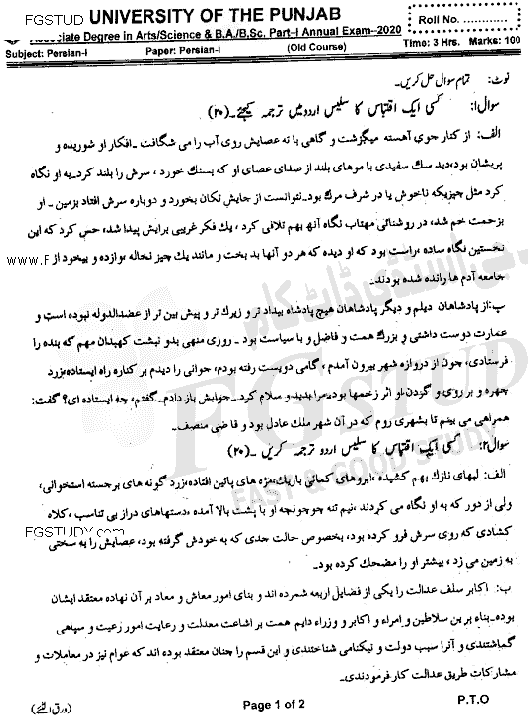 FGSTUD
UNIVERSITY OF THE PUNJAB
Roll No. ............
Associate Degree in Arts/Science & B.A./B.Sc. Part-I Annual Exam–2020
Subject: Persian-I Paper: Persian-I (Old Course) Time: 3 Hrs. Marks: 100
نوٹ: تمام سوال حل کریں۔
سوال۱: کسی ایک اقتباس کا سلیس اردو میں ترجمہ کیجئے۔ (۲۰)
الف: از کنار جوی آهسته میگزشت و گاهی با ته عصایش روی آب را می شگافت۔ افکار او شوریده و
پریشان بود، دید سگ سفیدی با موهای بلند از صدای عصای او که بسنگ خورد، سرش را بلند کرد۔ به او نگاه
کرد مثل چیزیکه ناخوش یا در شرف مرگ بود۔ نتوانست از جایش تکان بخورد و دوباره سرش افتاد بزمین۔ او
بزحمت خم شد، در روشنائی مهتاب نگاه آنها بهم تلاقی کرد، یک فکر غریبی برایش پیدا شد، حس کرد که این
نخستین نگاه ساده، راست بود که او دیده که هر دو آنها بد بخت و مانند یک چیز نخاله، وازده و بیخود از
جامعه آدم ها رانده شده بودند۔
www.F
ب: از پادشاهان دیلم و دیگر پادشاهان هیچ پادشاه بیدار تر و زیرک تر و پیش بین تر از عضدالدوله نبود، است و
عمارت دوست داشتی و بزرگ همت و فاضل و با سیاست بود۔ روزی منهی بدو نبشت کهبدان مهم که بنده را
فرستادی، چون از دروازه شهر بیرون آمدم، گامی دویست رفته بودم، جوانی را دیدم بر کناره راه ایستاده، زرد
چهره و بر روی و گردن او اثر زخمها بود، مرا بدید و سلام کرد۔ جوابش باز دادم۔ گفتم، چه ایستاده ای؟ گفت:
همراهی می بینم تا بشهری روم که در آن شهر ملک عادل بود و قاضی منصف۔
سوال۲: کسی ایک اقتباس کا سلیس اردو ترجمہ کریں۔ (۲۰)
FGSTUD
EASY & GOOD STUDY
الف: لبهای نازک بهم کشیده، ابروهای کمانی باریک، مژه های پائین افتاده، زرد گونه های برجسته استخوانی،
ولی از دور که به او نگاه می کردند، نیم تنه چوچونچه او با پشت بالا آمده، دستهاهای دراز بی تناسب، کلاه
FGSTUDY.com
کشادی که روی سرش فرو کرده بود، بخصوص حالت جدی که به خودش گرفته بود، عصایش را به سختی
به زمین می زد، بیشتر او را مضحک کرده بود۔
ب: اکابر سلف عدالت را یکی از فضایل اربعه شمرده اند و بنای امور معاش و معاد بر آن نهاده معتقد ایشان
بوده۔ بناء بر این سلاطین و امراء و اکابر و وزراء دایم همت بر اشاعت معدلت و رعایت امور رعیت و سپاهی
گماشتندی و آنرا سبب دولت و نیکنامی شناختندی و این قسم را چنان معتقد بوده اند که عوام نیز در معاملات و
مشارکات طریق عدالت کار فرمودندی۔
(ورق الٹئے) Page 1 of 2 P.T.O